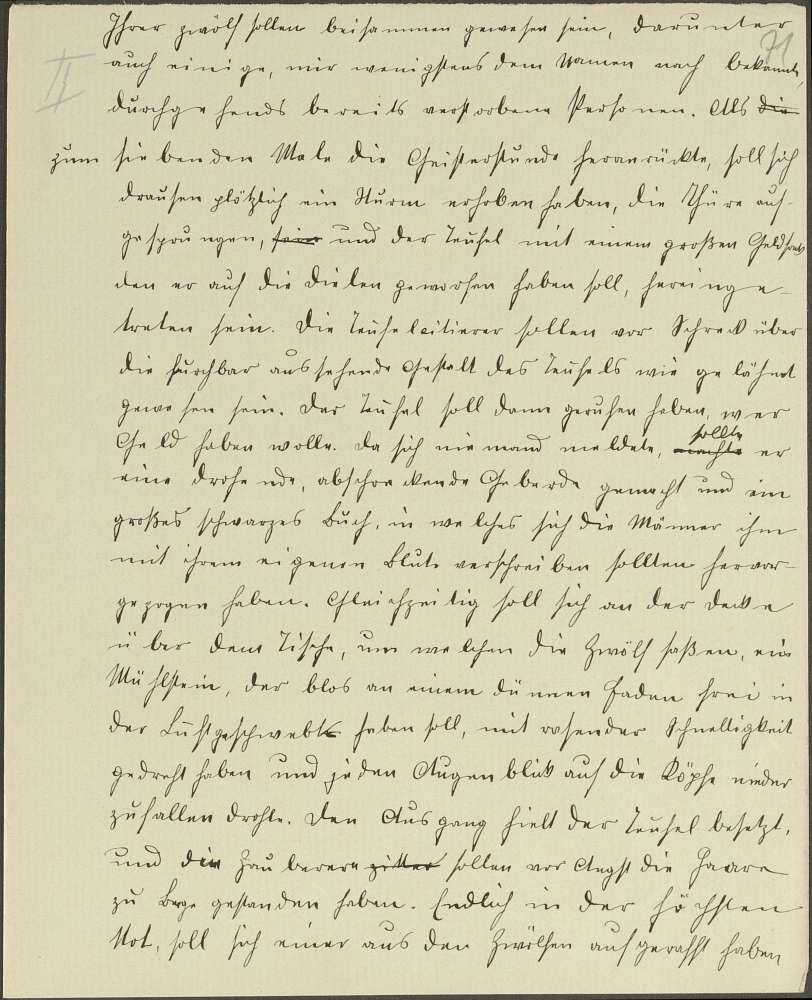 71
II
Ihrer zwölf sollen beisammen gewesen sein, darunter
auch einige, mir wenigstens dem Namen nach bekannte,
durchgehends bereits verstorbene Personen. Als die
zum siebenden Male die Geisterstunde heranrückte, soll sich
drausen plötzlich ein Sturm erhoben haben, die Thüre auf-
gesprungen, und der Teufel mit einem großen Geldsack
den er auf die Dielen geworfen haben soll, hereinge-
treten sein. Die Teufelcitierer sollen vor Schreck über
die furchbar aussehende Gestalt des Teufels wie gelähmt
gewesen sein. Der Teufel soll dann gerufen haben, wer
Geld haben wolle. Da sich niemand meldete, machte sollte er
eine drohende, abschreckende Geberde gemacht und ein
großes schwarzes Buch, in welches sich die Männer ihm
mit ihrem eigenen Blute verschreiben sollten hervor-
gezogen haben. Gleichzeitig soll sich an der Decke
über dem Tische, um welchen die Zwölf saßen, ein
Mühlstein, der blos an einem dünnen Faden frei in
der Luft geschwebt haben soll, mit rasender Schnelligkeit
gedreht haben und jeden Augenblick auf die Köpfe nieder
zufallen drohte. Den Ausgang hielt der Teufel besetzt,
und den Zauberern zitter sollen vor Angst die Haare
zu Berge gestanden haben. Endlich in der höchsten
Not, soll sich einer aus den Zwölfen aufgerafft haben